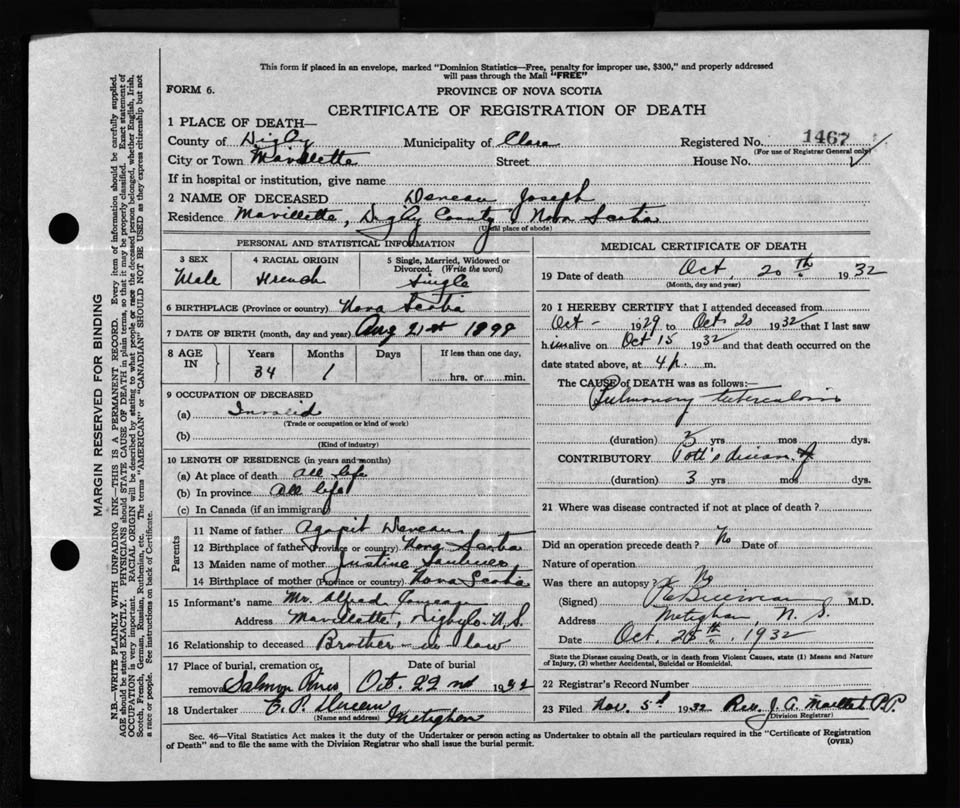 This form if placed in an envelope, marked "Dominion Statistics—Free, penalty for improper use, $300," and properly addressed
will pass through the Mail "FREE"
FORM 6.
PROVINCE OF NOVA SCOTIA
CERTIFICATE OF REGISTRATION OF DEATH
1 PLACE OF DEATH—
County of Digby Municipality of Clare Registered No. 1467
(For use of Registrar General only)
City or Town Mavillette Street House No.
If in hospital or institution, give name
2 NAME OF DECEASED Deveau Joseph
Residence Mavillette, Digby County Nova Scotia
(Usual place of abode)
PERSONAL AND STATISTICAL INFORMATION
3 SEX
Male
4 RACIAL ORIGIN
French
5 Single, Married, Widowed or
Divorced. (Write the word)
Single
6 BIRTHPLACE (Province or country) Nova Scotia
7 DATE OF BIRTH (month, day and year) Aug 21st 1898
8 AGE IN
Years Months Days If less than one day,
34 1 hrs. or min.
9 OCCUPATION OF DECEASED
(a) Invalid
(Trade or occupation or kind of work)
(b)
(Kind of industry)
10 LENGTH OF RESIDENCE (in years and months)
(a) At place of death all life
(b) In province all life
(c) In Canada (if an immigrant)
Parents
11 Name of father Agapit Deveau
12 Birthplace of father (Province or country) Nova Scotia
13 Maiden name of mother Justine
14 Birthplace of mother (Province or country) Nova Scotia
15 Informant's name Mr. Alfred Comeau
Address Mavillette, Digby Co. N.S.
16 Relationship to deceased Brother in law
17 Place of burial, cremation or Date of burial
removal Salmon River Oct. 22nd 1932
18 Undertaker Deveau Meteghan
(Name and address)
MEDICAL CERTIFICATE OF DEATH
19 Date of death Oct. 20th 1932
(Month, day and year)
20 I HEREBY CERTIFY that I attended deceased from
Oct - 1929 to Oct 20 1932 that I last saw
him alive on Oct 15 1932 and that death occurred on the
date stated above, at 4 p. m.
The CAUSE of DEATH was as follows:—
Pulmonary tuberculosis
(duration) 3 yrs mos dys.
CONTRIBUTORY Pott's disease of
(duration) 3 yrs. mos dys.
21 Where was disease contracted if not at place of death?
Did an operation precede death? No Date of
Nature of operation
Was there an autopsy? No
(Signed) M.D.
Address Meteghan, N. S.
Date Oct. 25th, 1932
State the Disease causing Death, or in death from Violent Causes, state (1) Means and Nature
of Injury, (2) whether Accidental, Suicidal or Homicidal.
22 Registrar's Record Number
23 Filed Nov. 5th 1932 Rev. J. A. Maillet P.P.
(Division Registrar)
Sec. 46—Vital Statistics Act makes it the duty of the Undertaker or person acting as Undertaker to obtain all the particulars required in the "Certificate of Registration
of Death" and to file the same with the Division Registrar who shall issue the burial permit.
(OVER)
MARGIN RESERVED FOR BINDING
N.B.—WRITE PLAINLY WITH UNFADING INK—THIS IS A PERMANENT RECORD. Every item of information should be carefully supplied.
AGE should be stated EXACTLY. PHYSICIANS should STATE CAUSE OF DEATH in plain terms, so that it may be properly classified. Exact statement of
OCCUPATION is very important. RACIAL ORIGIN will be described by stating to what people or race the deceased person belonged, whether English, Irish,
Scotch, French, German, Russian, Ruthenian, etc. The terms "AMERICAN" or "CANADIAN" SHOULD NOT BE USED as they express citizenship but not
a race or people. See instructions on back of Certificate.